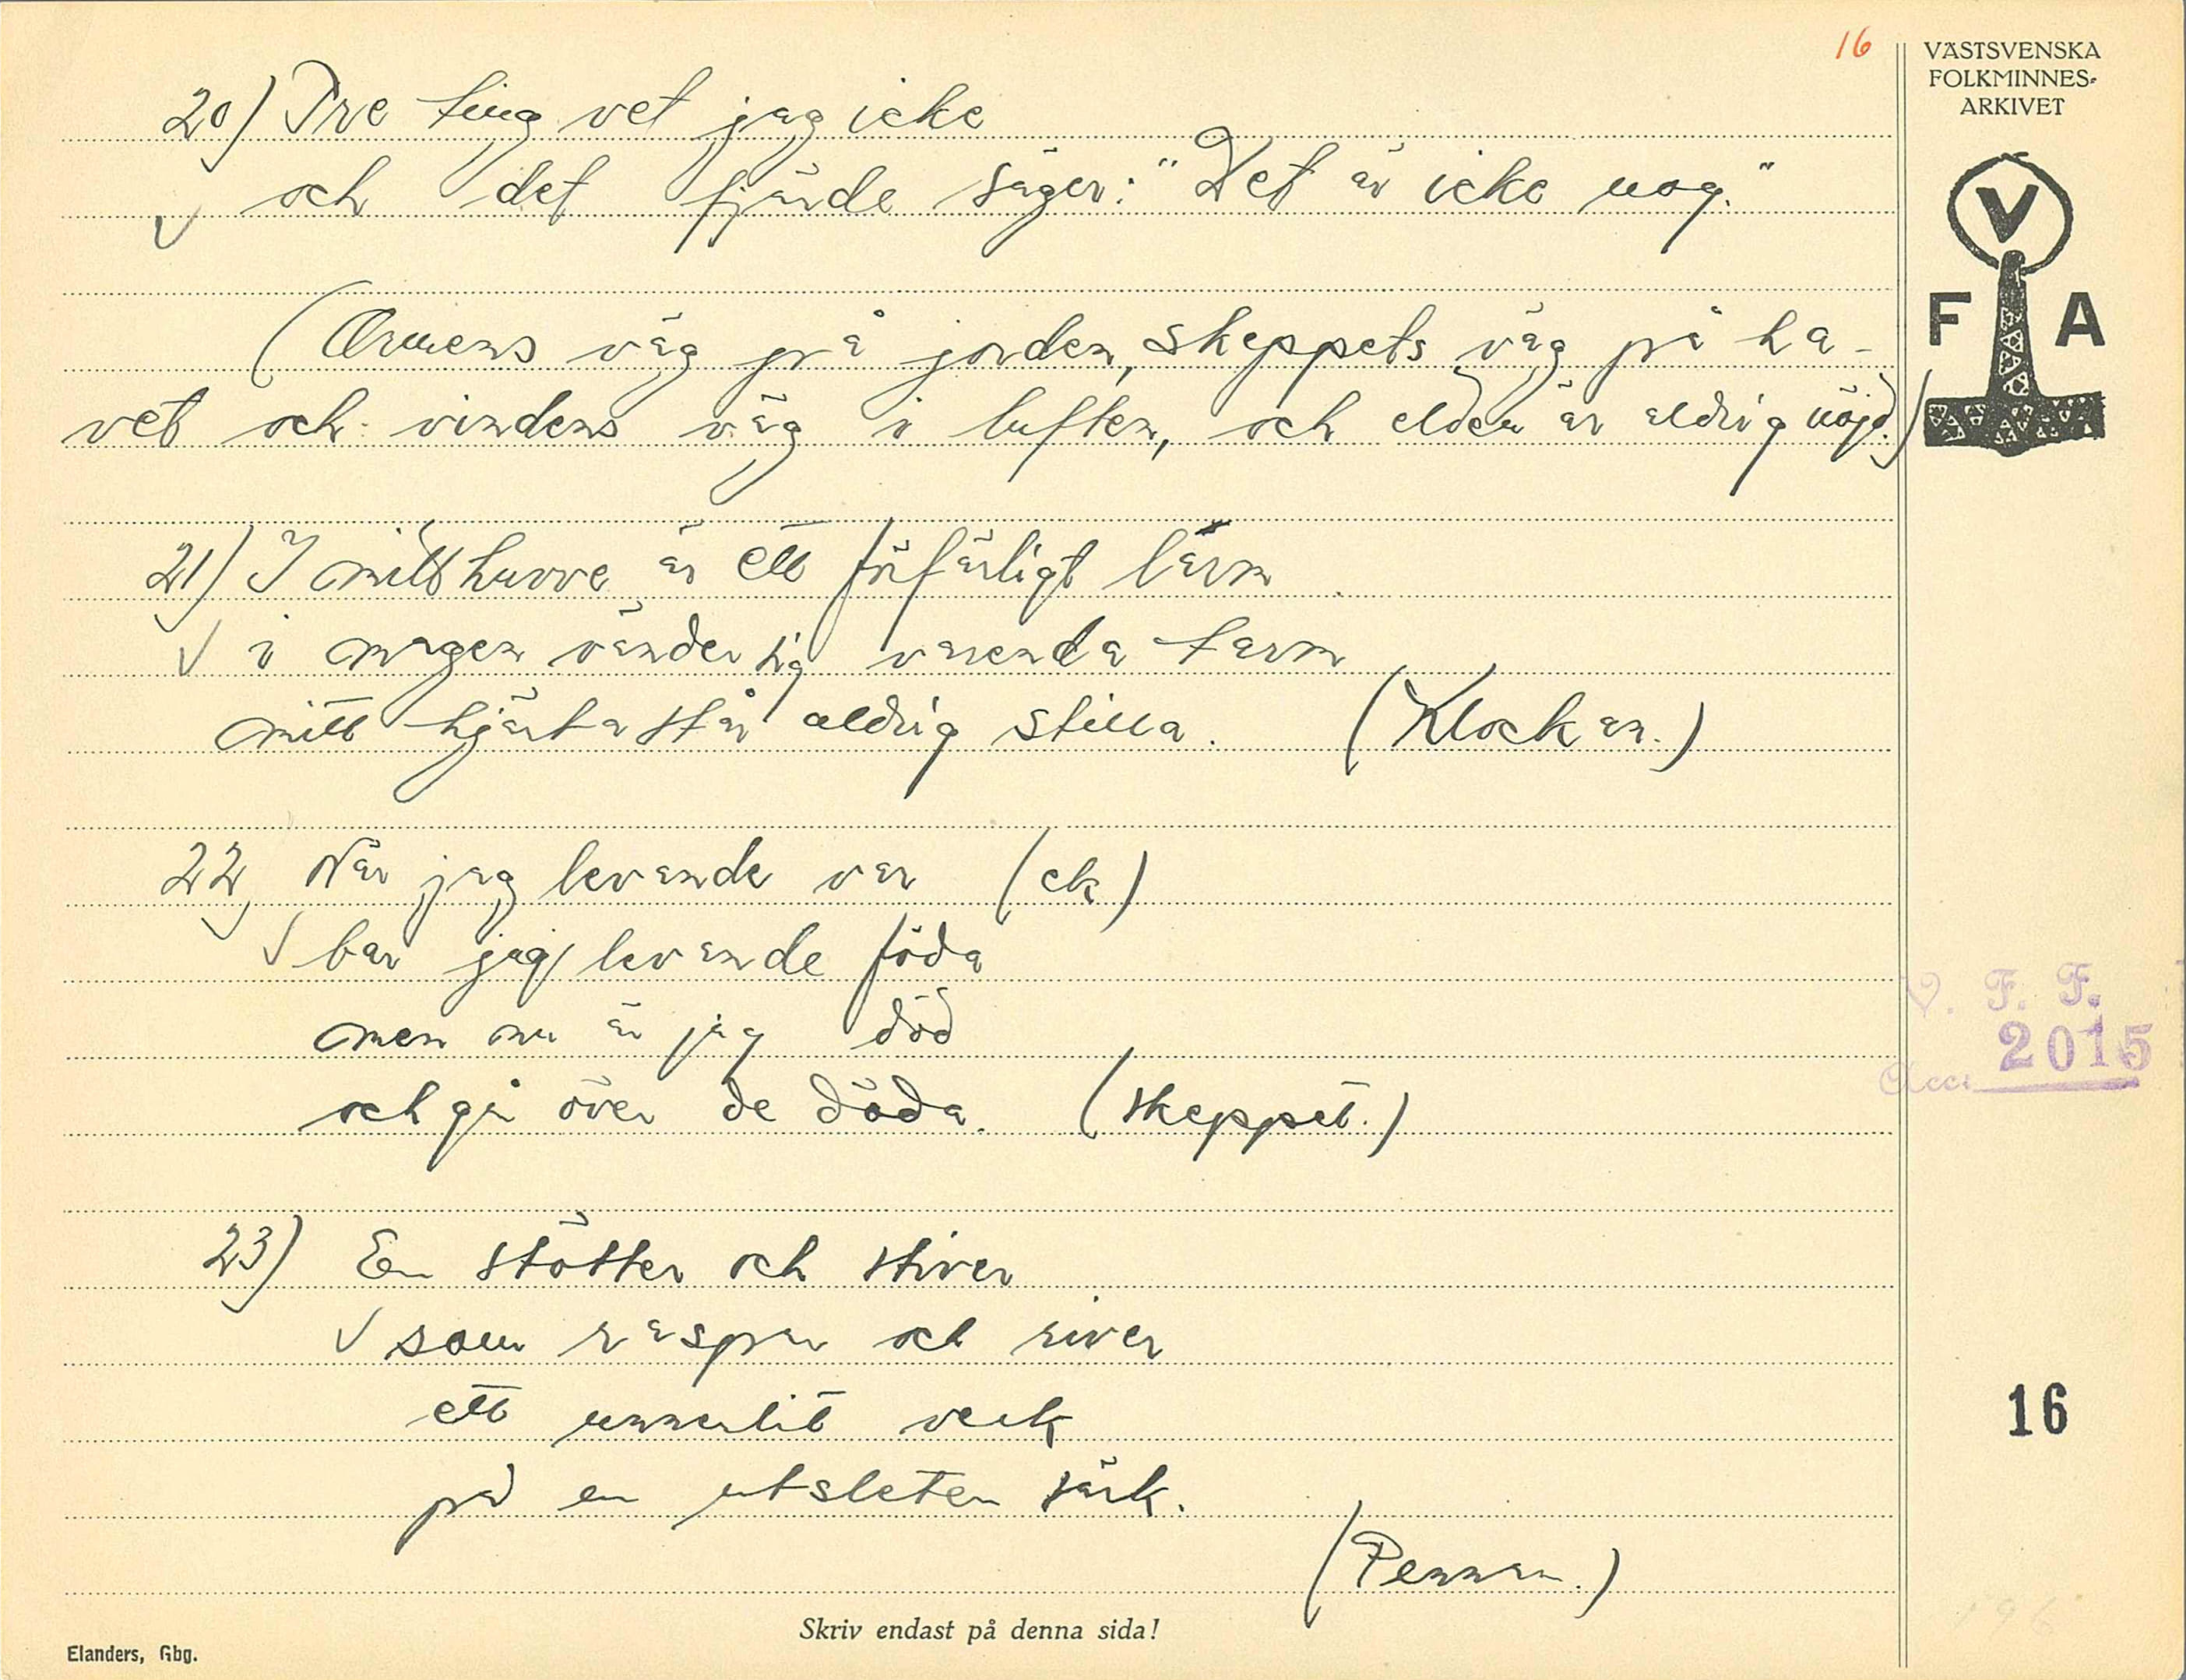 16
VÄSTSVENSKA
FOLKMINNES-
ARKIVET
V
F A
20) Tre ting vet jag icke
och det fjärde säger: "Det är icke nog."
(Ormens väg på jorden, skeppets väg på ha-
vet och vindens väg i luften, och elden är aldrig nöjd.)
21) I mitt huvve är ett förfärligt lärm
i magen vänder sig varenda tarm
mitt hjärta står aldrig stilla. (Klockan.)
22, När jag levande var (ek)
bar jag levande föda
men nu är jag död
och går över de döda. (Skeppet.)
23) En stötter och stiver
som raspar och river
ett verk
på en utsleten särk.
(Pennan.)
V. F. F.
2015
Acc.
16
Skriv endast på denna sida!
Elanders, Gbg.